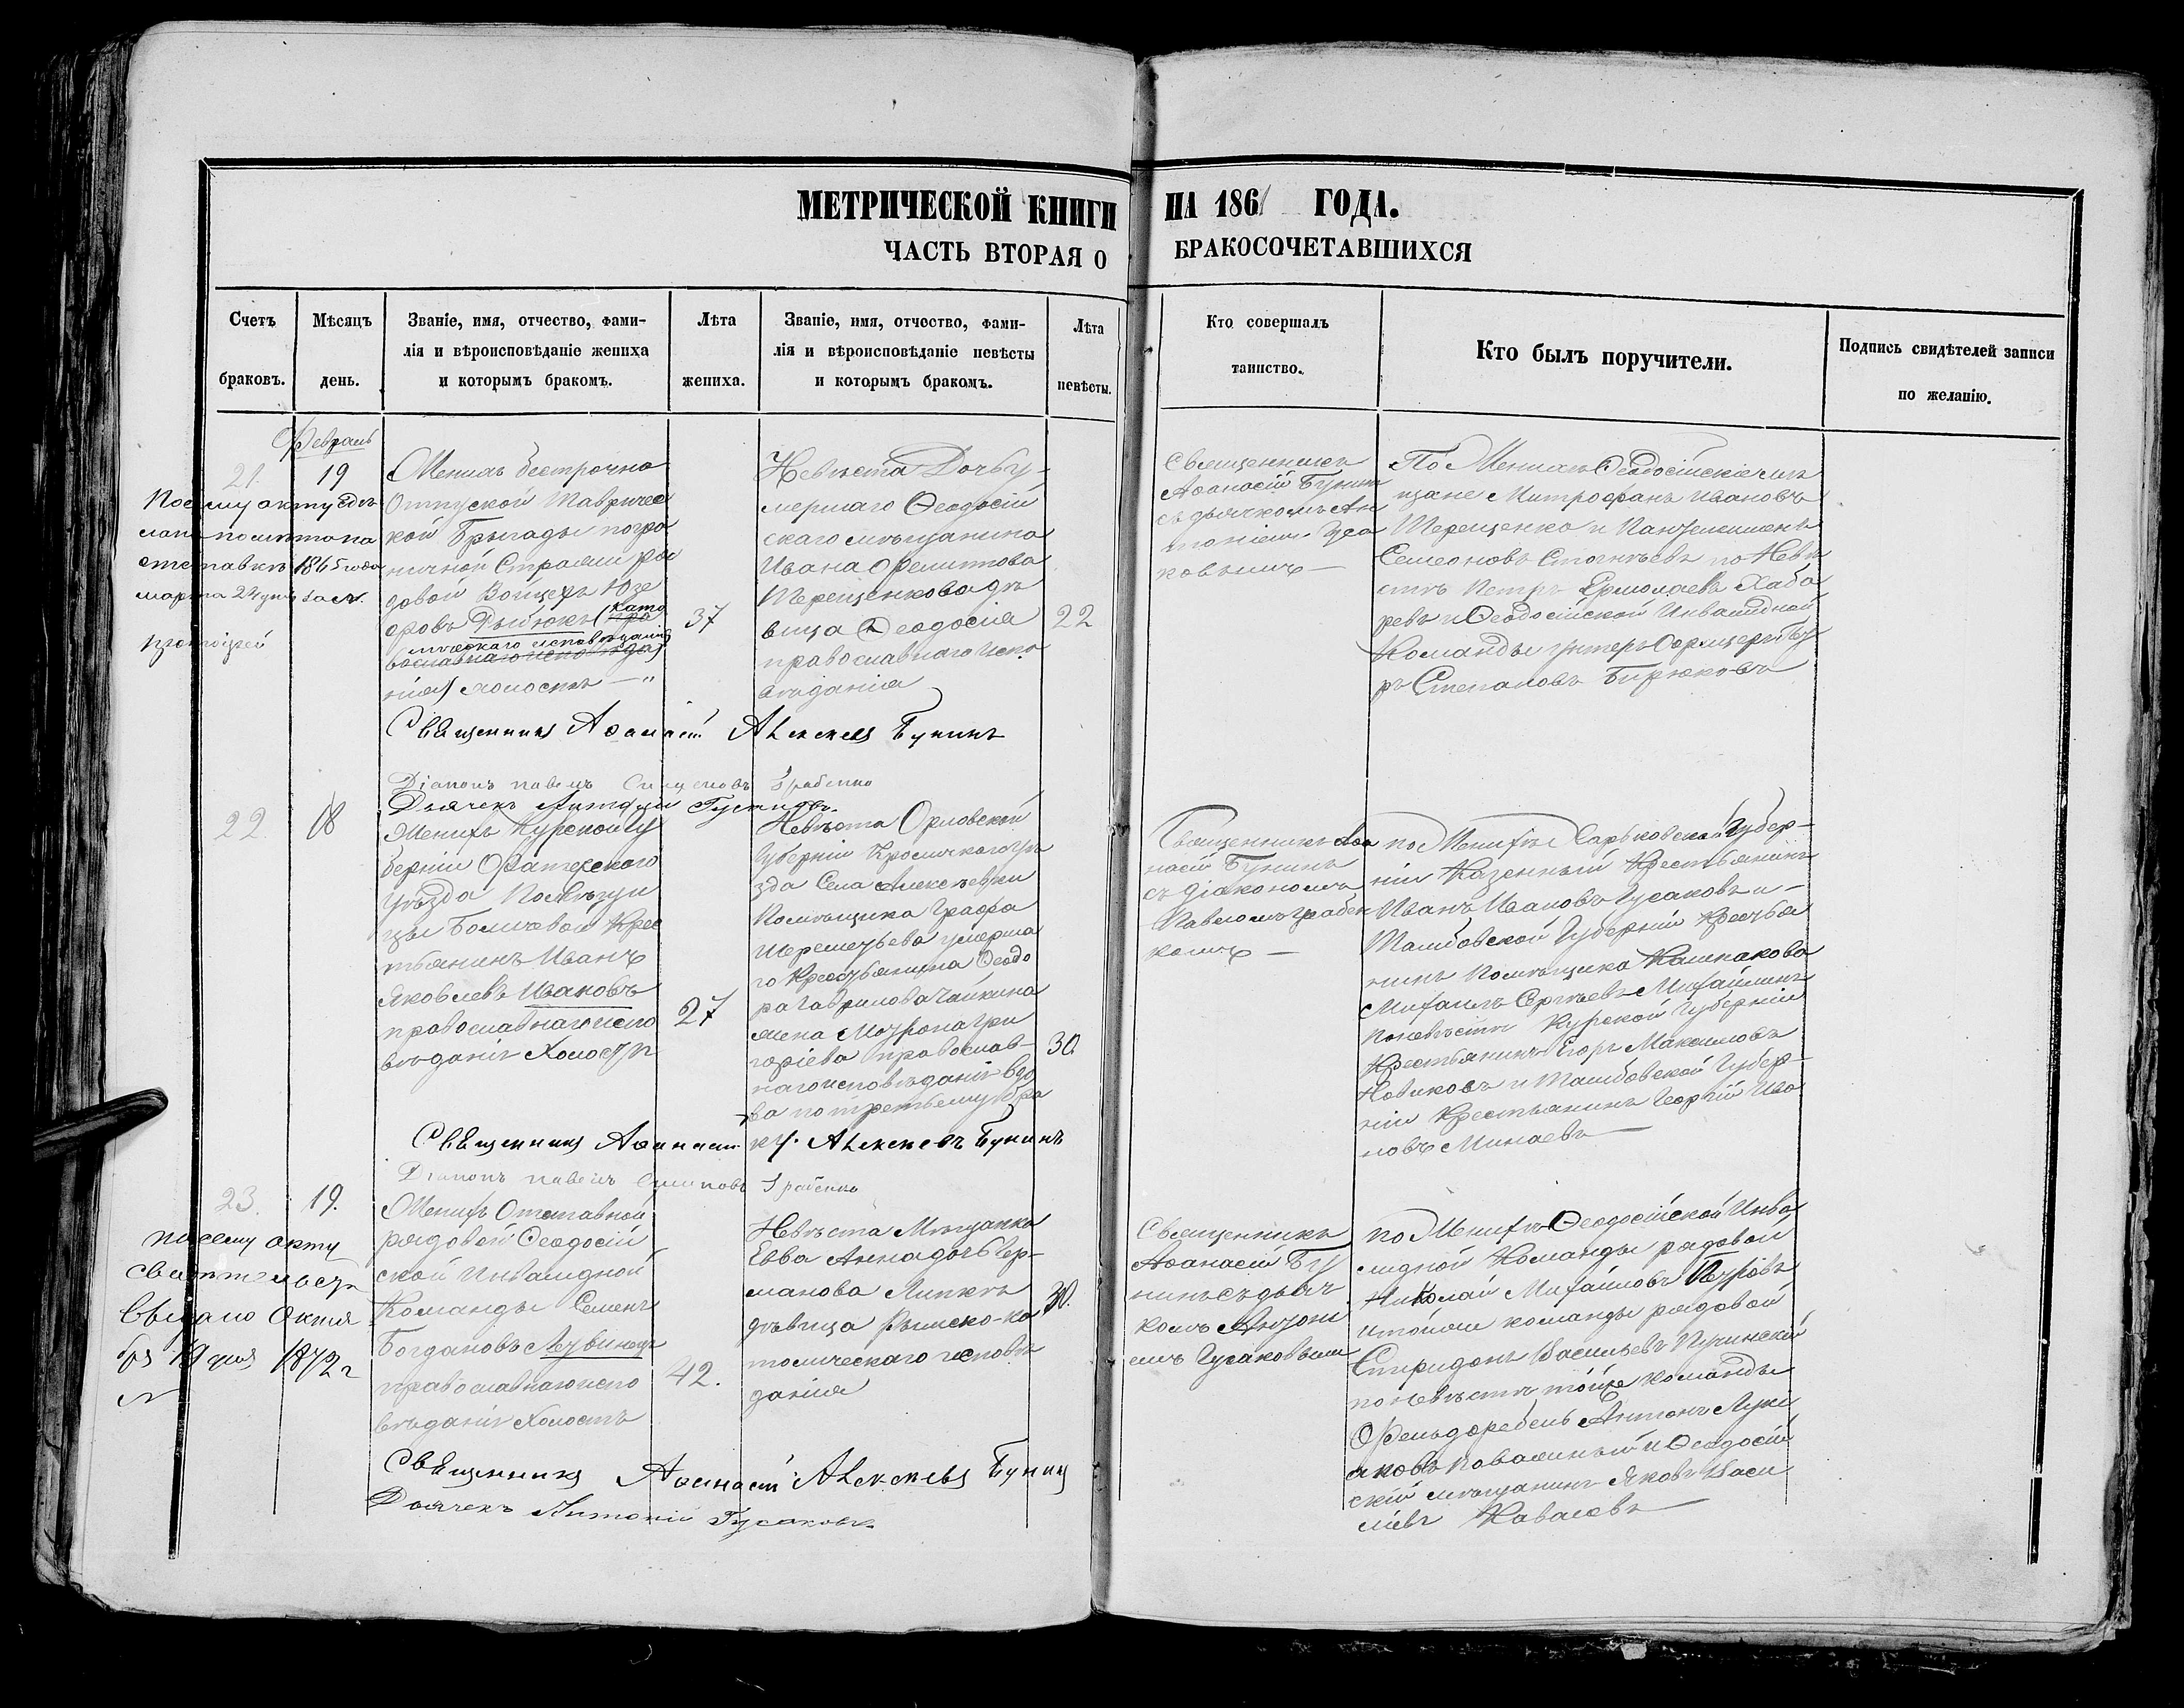 МЕТРИЧЕСКОЙ КНИГИ НА 1861 ГОДА.
ЧАСТЬ ВТОРАЯ О БРАКОСОЧЕТАВШИХСЯ
Счетъ браковъ.
Мѣсяцъ день.
Званіе, имя, отчество, фами-
лія и вѣроисповѣданіе жениха
и которымъ бракомъ.
Лѣта жениха.
Званіе, имя, отчество, фами-
лія и вѣроисповѣданіе невѣсты
и которымъ бракомъ.
Лѣта невѣсты.
Кто совершалъ
таинство.
Кто былъ поручители.
Подпись свидѣтелей записи
по желанію.
Февраль
21.
19
По сему акту
марта 24 дня
Женихъ безсрочно
Отпускной Тавричес
кой Бригады погра
ничной Стражи ря
довой Войцехъ Юзе
фовъ
(като
лическаго исповѣданія)
холостъ
37
Невѣста Дочь у-
мершаго Ѳеодосій
скаго мѣщанина
Ивана Филиппова
Терещенкова дѣ
вица Ѳеодосія
православнаго испо
вѣданія
22
Священникъ
Аѳанасій Бунинъ
съ дьячкомъ Ан
тоніемъ Гуса
ковымъ —
По Женихѣ Ѳеодосійскіе мѣ
щане Митрофанъ Ивановъ
Терещенко и Пантелимонъ
Семеоновъ по Невѣ
стѣ Петръ Ермолаевъ Хаба
ревъ и Ѳеодосійской Инвалидной
Команды унтеръ Офицеръ
Степановъ Бирюковъ
Священникъ Аѳанасій Алексѣевъ Бунинъ
Діаконъ Павелъ Грабенко
Дьячекъ Антоній Гусаковъ
22
18
Женихъ Курской Гу
берніи Фатежскаго
Уѣзда Помѣщи
цы Крес
тьянинъ Иванъ
Яковлевъ Ивановъ
православнаго испо
вѣданія Холостъ
27
Невѣста Орловской
Губерніи Кромскаго Уѣ
зда Села Алексѣевки
Помѣщика Графа
Шереметьева умерша
го Крестьянина Ѳеодо
ра Гаврилова Чайкина
жена Матрона Гри
горіева православ-
наго исповѣданія вдо
ва по третьему бра
ку.
30
Священникъ Аѳа
насій Бунинъ
съ діакономъ
Павломъ Грабен
комъ —
по Женихѣ Харьковской Губер-
ніи Казенный Крестьянинъ
Иванъ Ивановъ Гусаковъ и —
Тамбовской Губерніи Крестья
нинъ Помѣщика
Михаилъ Сергѣевъ
по невѣстѣ Курской Губерніи
Крестьянинъ Егоръ Максимовъ
Новиковъ и Тамбовской Губер-
ніи Крестьянинъ Георгій Ива
новъ Минаевъ
Священникъ Аѳанасій Алексѣевъ Бунинъ
Діаконъ Павелъ Грабенко
23.
19.
По сему акту
свидетельство
Выдано Октя
бря 19 дня 1872 г
Женихъ Отставной
рядовой Ѳеодосій
ской Инвалидной
Команды Семенъ
Богдановъ
православнаго испо
вѣданія Холостъ
42.
Невѣста Мѣщанка
Евва Анна дочь Гер-
манова
дѣвица Римско-ка
толическаго исповѣ
данія
30.
Священникъ
Аѳанасій Бу
нинъ съ дьяч
комъ Антоні
емъ Гусаковымъ
по Женихѣ Ѳеодосійской Инва
лидной Команды рядовой
Николай Михайловъ Петровъ
и той же команды рядовой
Спиридонъ Васильевъ
по невѣстѣ той же Команды
Фельдфебель Антонъ
и Ѳеодосій
скій мѣщанинъ Яковъ Васи
льевъ Ковалевъ
Священникъ Аѳанасій Алексѣевъ Бунинъ
Дьячекъ Антоній Гусаковъ